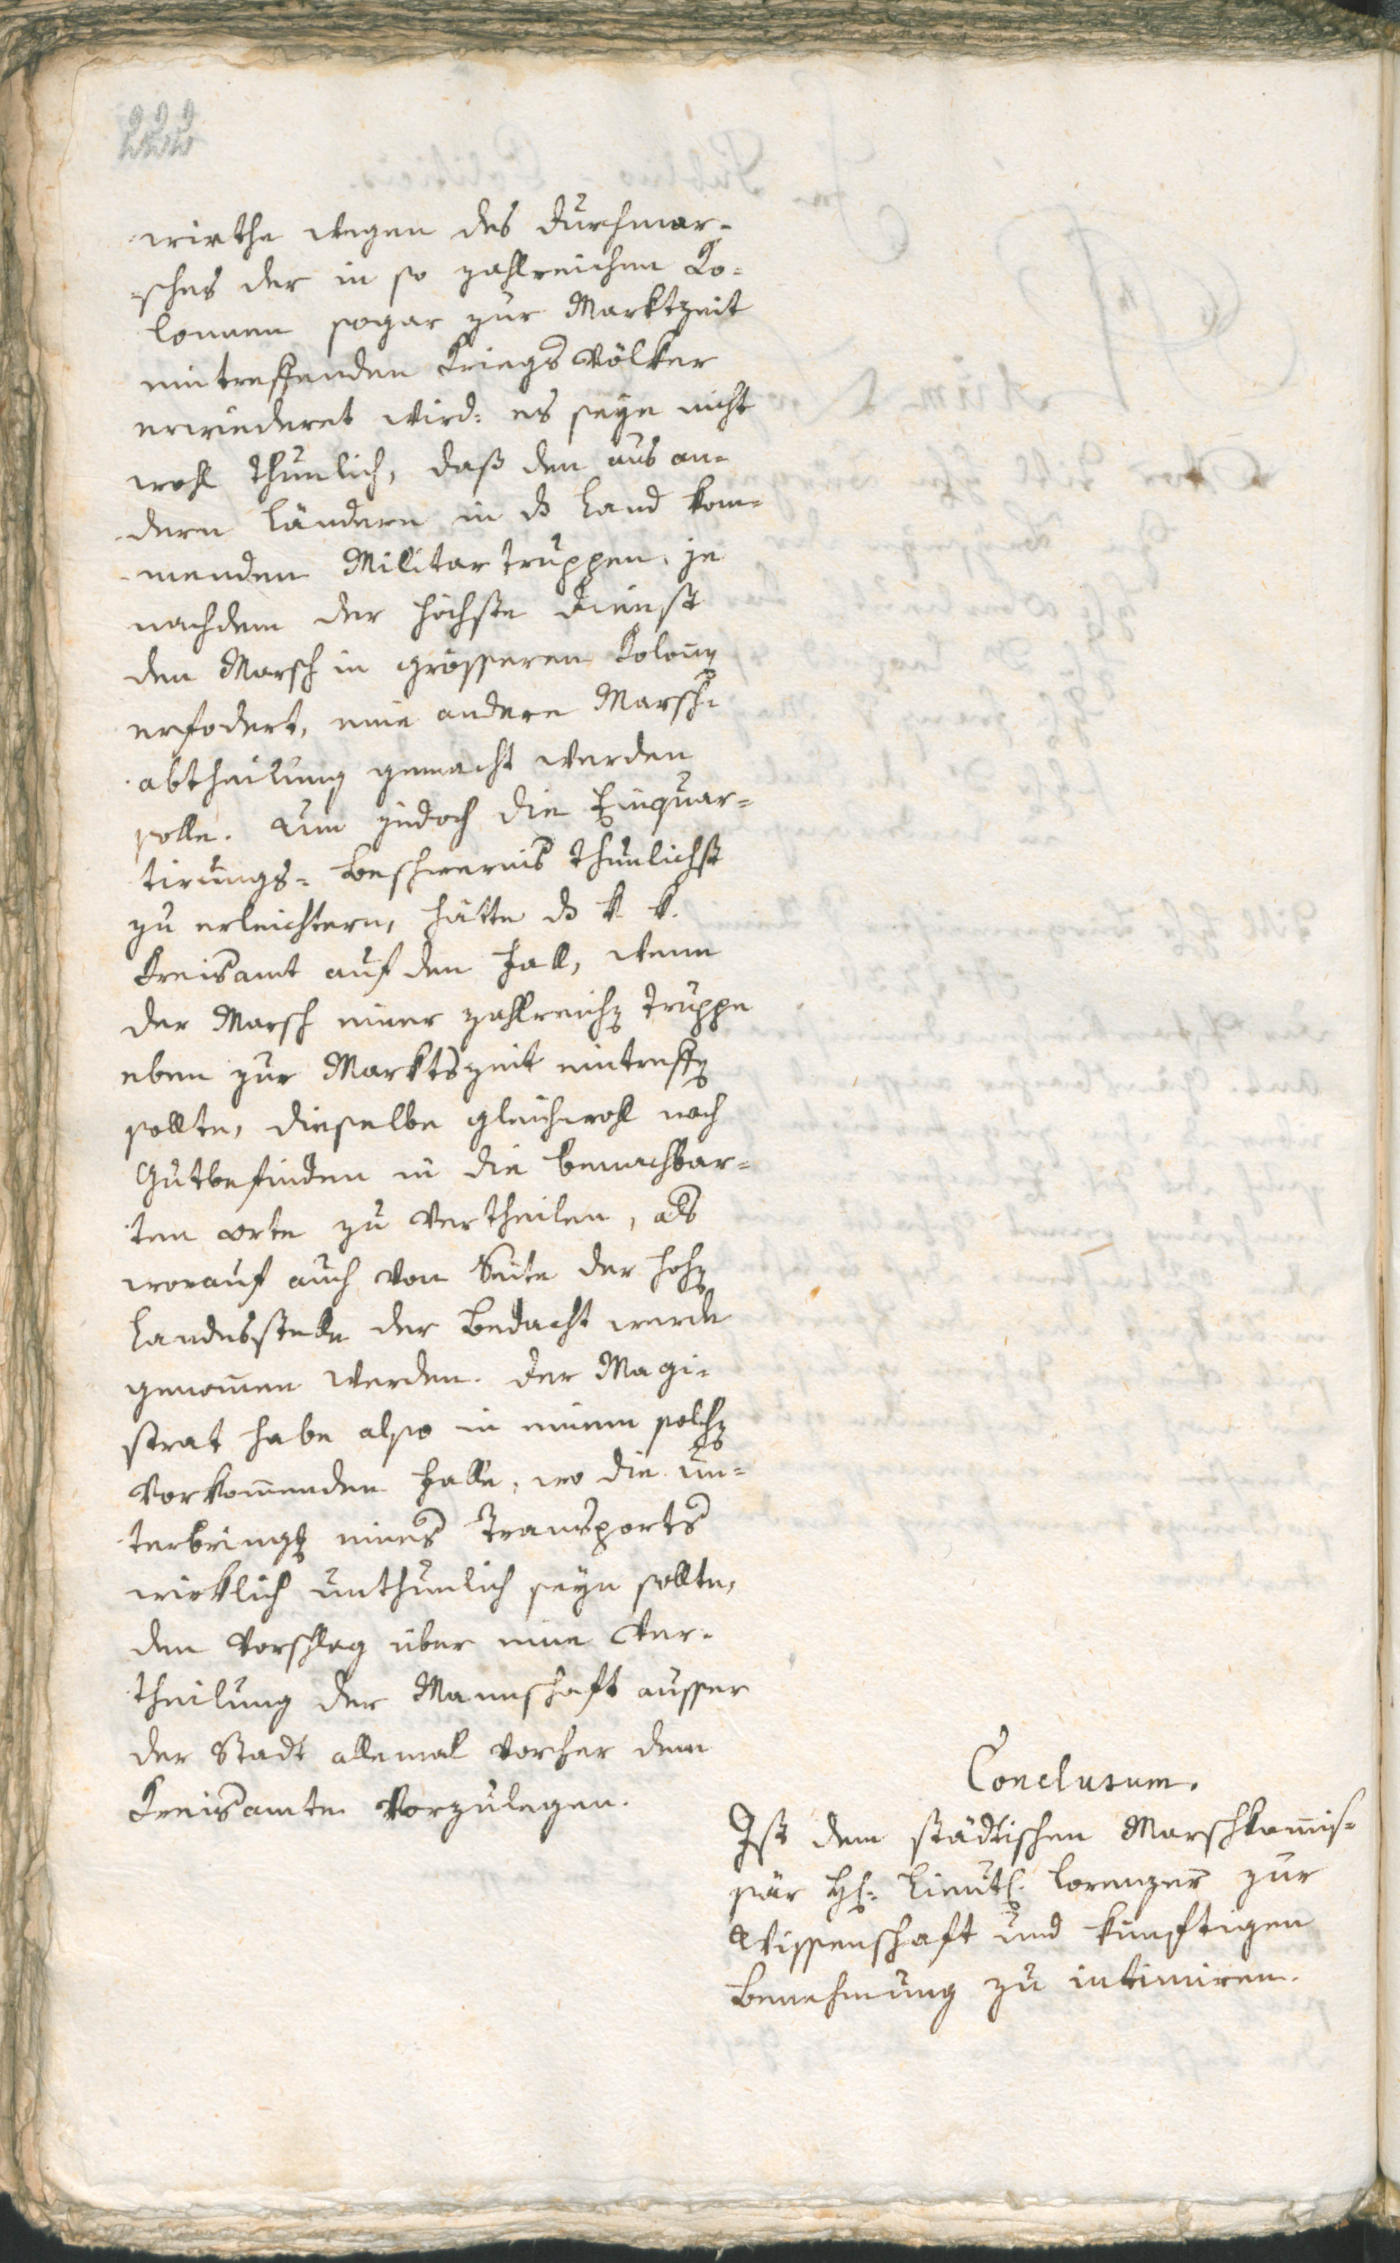 222
wirthe wegen des Durchmar-
sches der in so zahlreichen Ko-
lonnen sogar zur Marktzeit
eintreffenden Kriegsvölker
erwiederet wird: es seye nicht
wohl thunlich, daß den aus an-
dern Ländern in ds Land kom-
menden Militartruppen, je
nachdem der höchste Dienst
den Marsch in grösseren Kolonn
erfodert, eine andere Marsch-
abtheilung gemacht werden
solle. Um jedoch die Einquar-
tirungs-Beschwernis thunlichst
zu erleichtern, hätte ds k. k.
Kreisamt auf den Fall, wenn
der Marsch einer zahlreich Truppe
eben zur Marktszeit eintreff
sollte, dieselbe gleichwohl nach
Gutbefinden in die benachbar-
ten Orte zu vertheilen, als
worauf auch von Seite der hoh
Landesstelle der Bedacht werde
genom̄en werden. Der Magi-
strat habe also in einem solch
vorkom̄enden Falle, wo die Un-
terbringg eines Transports
wirklich unthunlich seyn sollte,
den Vorschlag über eine Ver-
theilung der Mannschaft ausser
der Stadt allemal vorher dem
Kreisamte vorzulegen.
Conclusum.
Ist dem städtischen Marschkom̄is-
sär H: Lieut: Lorenzer zur
Wissenschaft und künftigen
Benehmung zu intimiren.